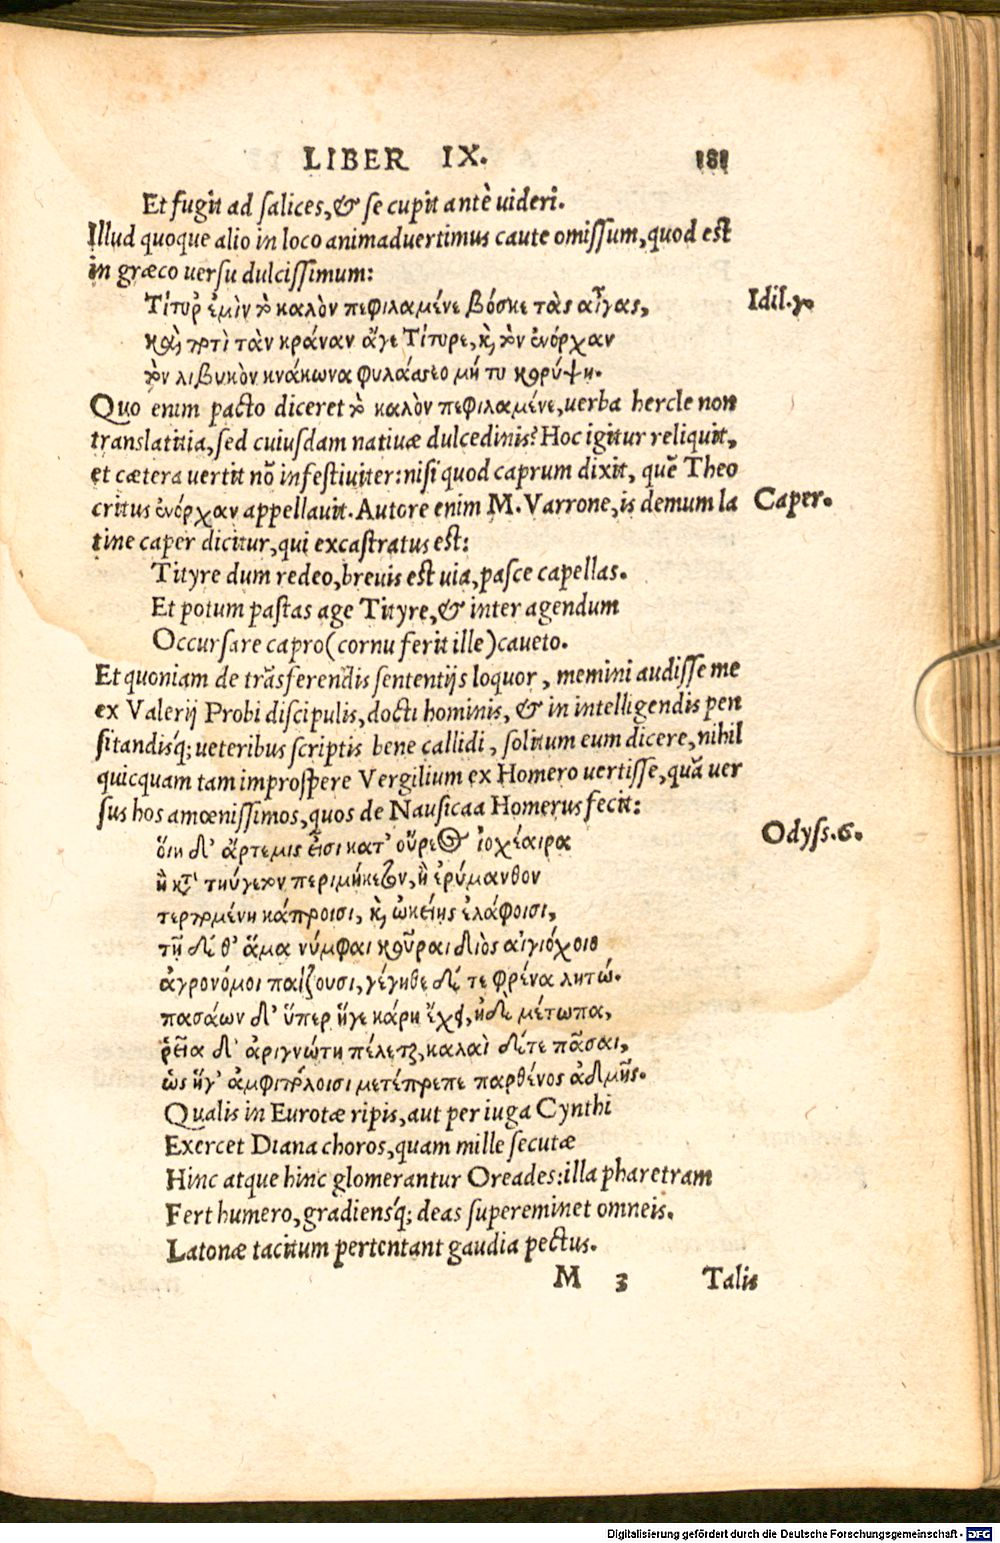 LIBER IX. 181
Et fugit ad salices, & se cupit antè uideri.
Illud quoque alio in loco animaduertimus caute omissum, quod est
in græco uersu dulcissimum:
Τίτυρ᾽ ἐμὶν τὸ καλὸν πεφιλαμένε βόσκε τὰς αἶγας,
Idil. γ.
καὶ ποτὶ τὰν κράναν ἄγε Τίτυρε, κὶ τὸν ἐνόρχαν
τὸν λιβυκὸν κνάκωνα φυλάασεο μή τυ κορύψη.
Quo enim pacto diceret τὸ καλὸν πεφιλαμένε, uerba hercle non
translatitia, sed cuiusdam natiuæ dulcedinis? Hoc igitur reliquit,
et cætera uertit nō infestiuiter: nisi quod caprum dixit, quē Theo
critus ἐνόρχαν appellauit. Autore enim M. Varrone, is demum la
Caper.
tine caper dicitur, qui excastratus est:
Tityre dum redeo, breuis est uia, pasce capellas.
Et potum pastas age Tityre, & inter agendum
Occursare capro (cornu ferit ille) caueto.
Et quoniam de trāsferendis sententijs loquor, memini audisse me
ex Valerij Probi discipulis, docti hominis, & in intelligendis pen
sitandisq́; ueteribus scriptis bene callidi, solitum eum dicere, nihil
quicquam tam improspere Vergilium ex Homero uertisse, quā uer
sus hos amœnissimos, quos de Nausicaa Homerus fecit:
Odyss. 6.
οἵη δ᾽ ἄρτεμις εἶσι κατ᾽ οὔρεος ἰοχέαιρα
ἢ κτ᾽ τηύγετον περιμήκετον, ἢ ἐρύμανθον
τερπομένη κάπροισι, κὶ ὠκείης ἐλάφοισι,
τῇ δέ θ᾽ ἅμα νύμφαι κοῦραι διὸς αἰγιόχοιο
ἀγρονόμοι παίζουσι, γέγηθε δέ τε φρένα λητώ.
πασάων δ᾽ ὕπερ ἥγε κάρη ἔχει, ἠδὲ μέτωπα,
ῥεῖα δ᾽ ἀριγνώτη πέλεται, καλαὶ δέτε πᾶσαι,
ὡς ἥγ᾽ ἀμφιπόλοισι μετέπρεπε παρθένος ἀδμής.
Qualis in Eurotæ ripis, aut per iuga Cynthi
Exercet Diana choros, quam mille secutæ
Hinc atque hinc glomerantur Oreades: illa pharetram
Fert humero, gradiensq́; deas supereminet omneis.
Latonæ tacitum pertentant gaudia pectus.
M 3 Talis
Digitalisierung gefördert durch die Deutsche Forschungsgemeinschaft - DFG